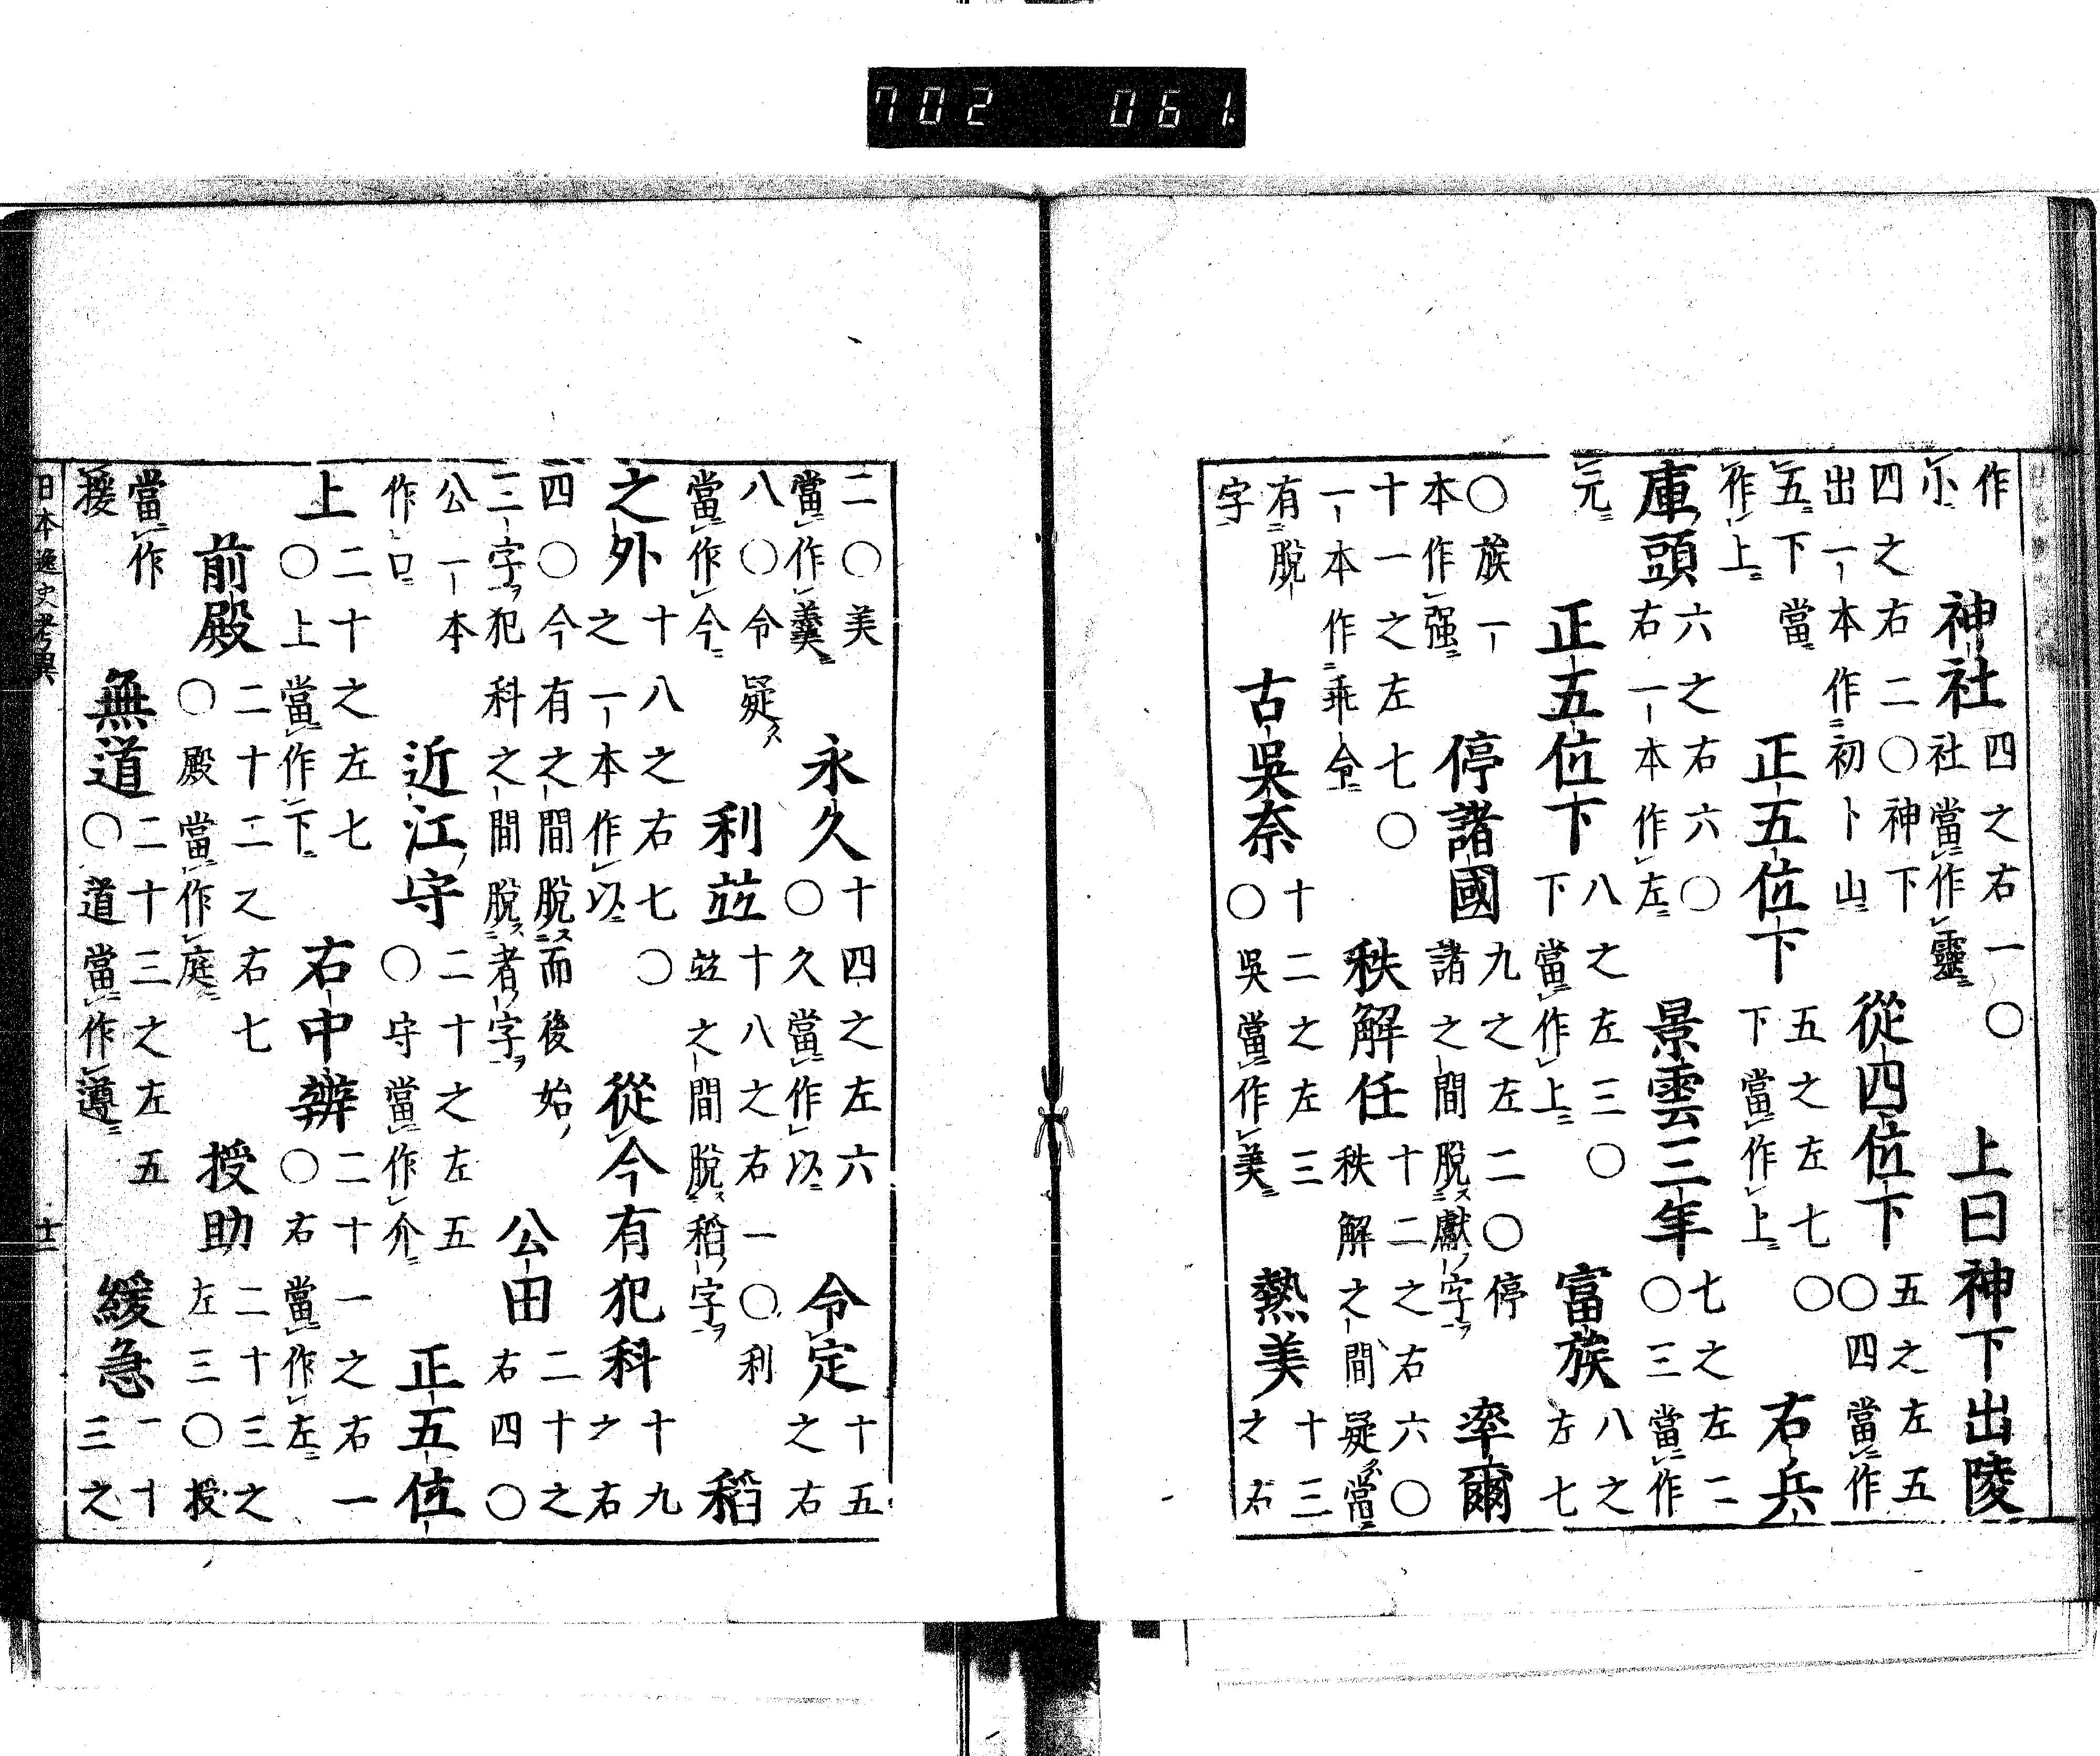 作小 神社 四之右一〇社當作靈 上曰神下出陵
四之右二〇神下出一本作初卜山 從四位下 五之左五〇四當作
五下當作上 正五位下 五之左七〇下當作上 右兵
庫頭 六之右六〇右一本作左 景雲三年 七之左二〇三當作
元 正五位下 八之左三〇下當作上 富族 八之左七
〇族一本作强 停諸國 九之左二〇停諸之間脫獻字 率爾
十一之左七〇一本作乖令 秩解任 十二之右六〇秩解之間疑當
有脫字 古吳奈 十二之左三〇吳當作美 熱美 十三之右
二〇美當作羹 永久 十四之左六〇久當作以 令定 十五之右
八〇令疑當作今 利竝 十八之右一〇利竝之間脫稻字 稻
之外 十八之右七〇之一本作以 從今有犯科 十九之右
四〇今有之間脫而後始三字犯科之間脫者字 公田 二十之右四〇
公一本作口 近江守 二十之左五〇守當作介 正五位
上 二十之左七〇上當作下 右中辨 二十一之右一〇右當作左
前殿 二十二之右七〇殿當作庭 授助 二十三之左三〇授
當作援 無道 二十三之左五〇道當作遵 緩急 一十三之
日本逸史考異
702 061